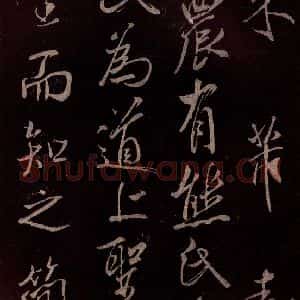 米芾
農有熊氏
氏為道上聖
而知之簡
Shufawang.cn